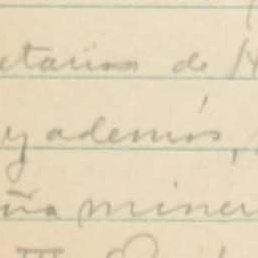 etarios de H
y además,
ña miner